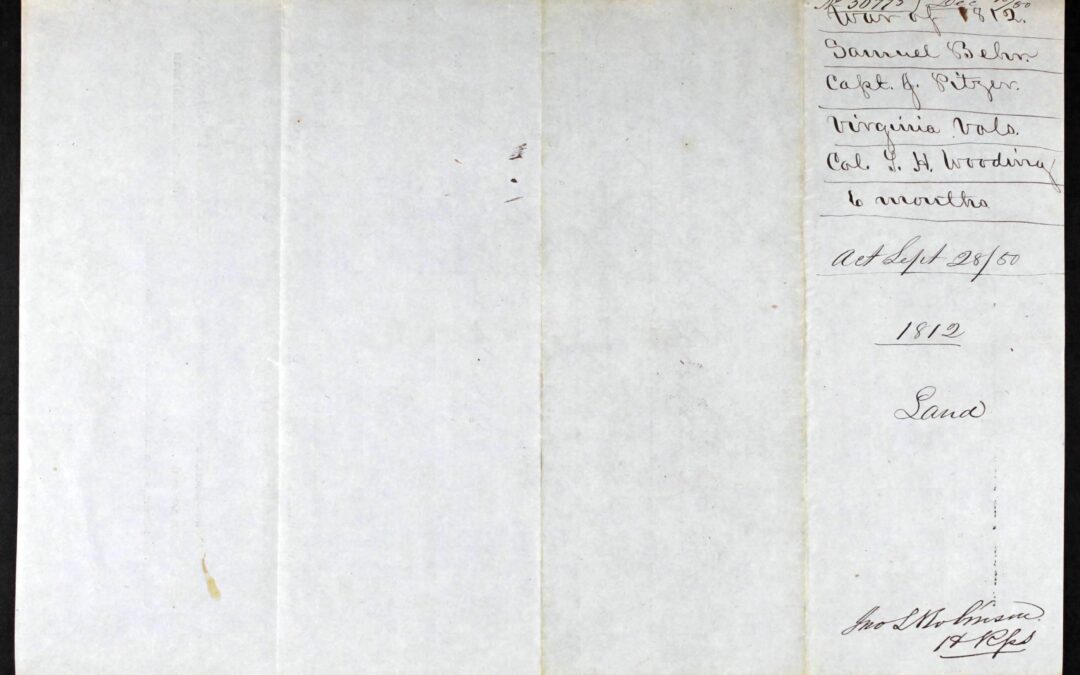 No 30775 Dec 10/50
War of 1812.
Samuel Behr.
Capt. J. Pitzer.
Virginia Vols.
Col. T. H. Wooding
6 months
Act Sept 28/50
1812
Land
Jno L Robinson
H Reps